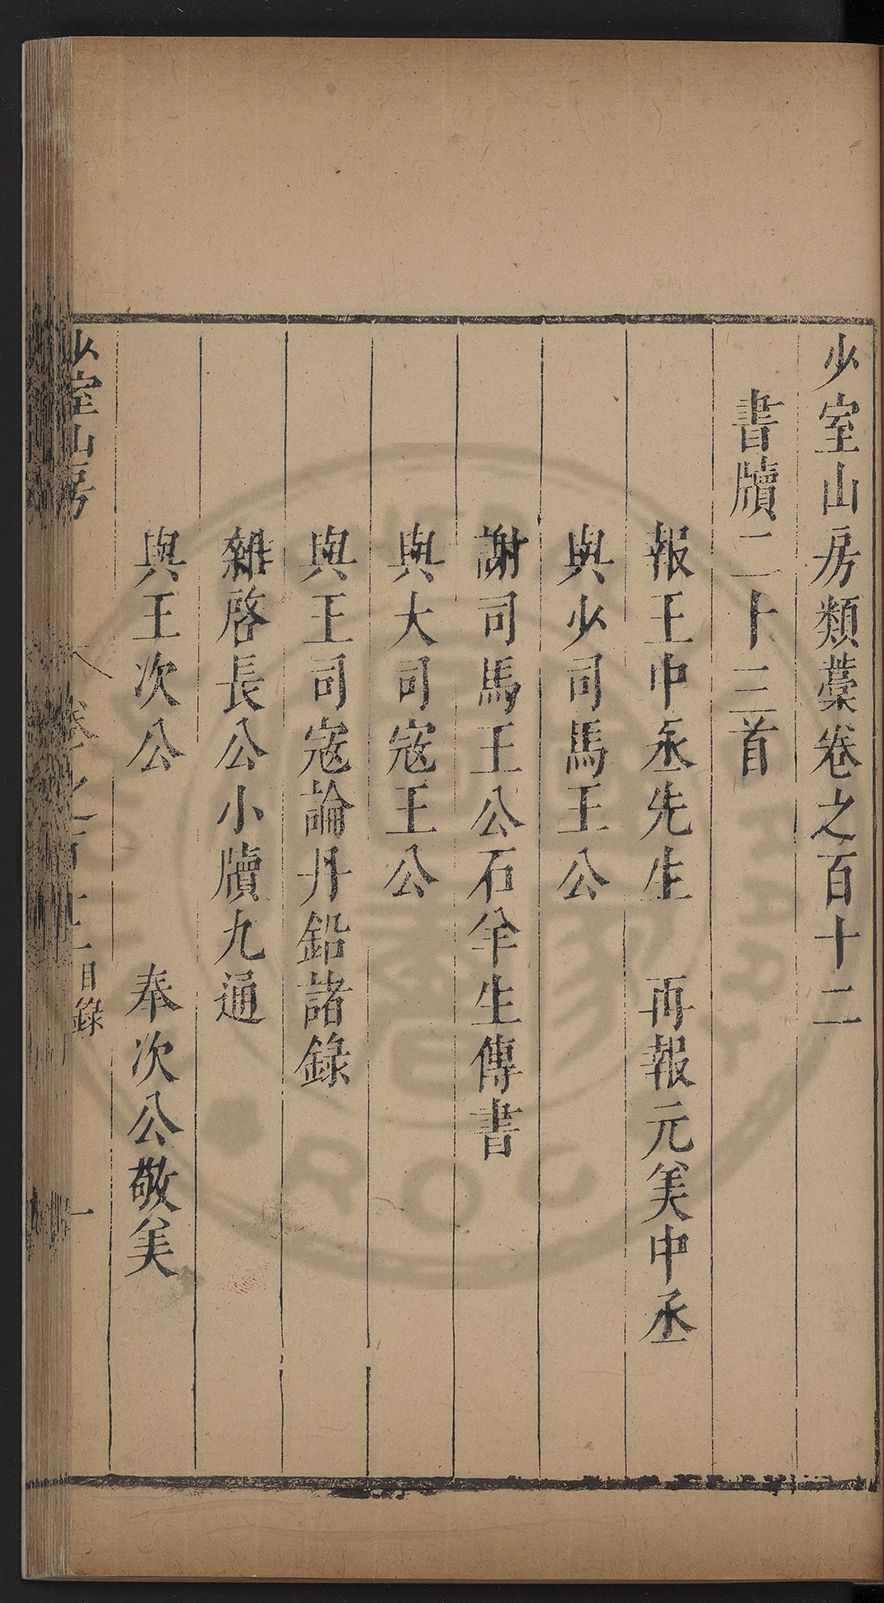 少室山房類藁卷之百十二
書牘二十三首
報王中丞先生　再報元美中丞
與少司馬王公
謝司馬王公石羊生傳書
與大司寇王公
與王司寇論丹鉛諸錄
雜啓長公小牘九通
與王次公　奉次公敬美
少室山房　卷之百十二目錄　一